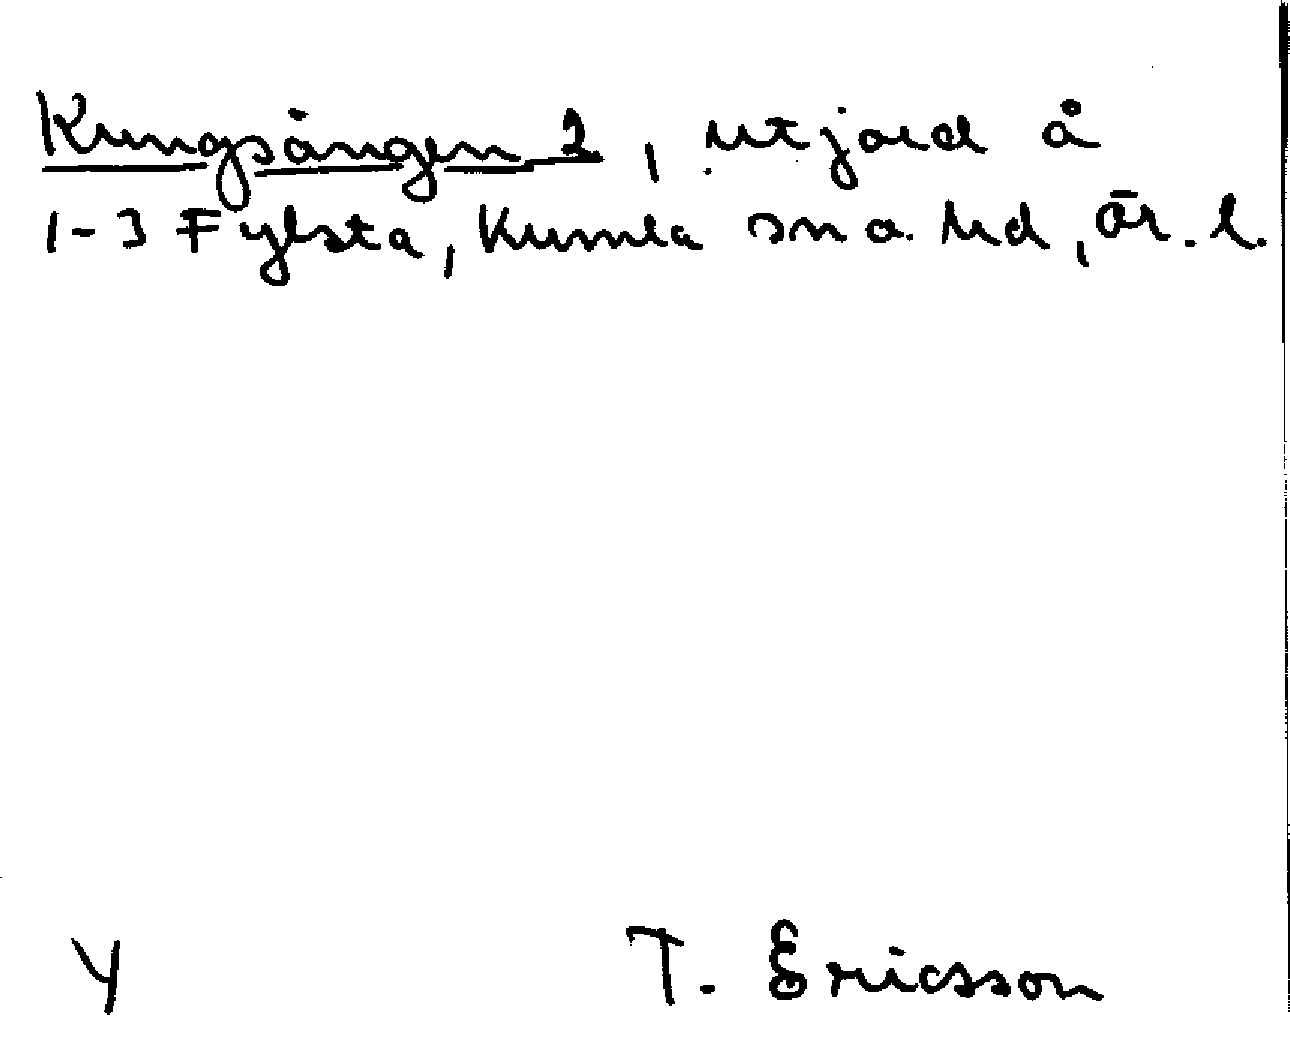 Kungsängen 2, utjord å
1-3 Fylsta, Kumla sn o. hd, Ör. l.
Y T. Ericsson